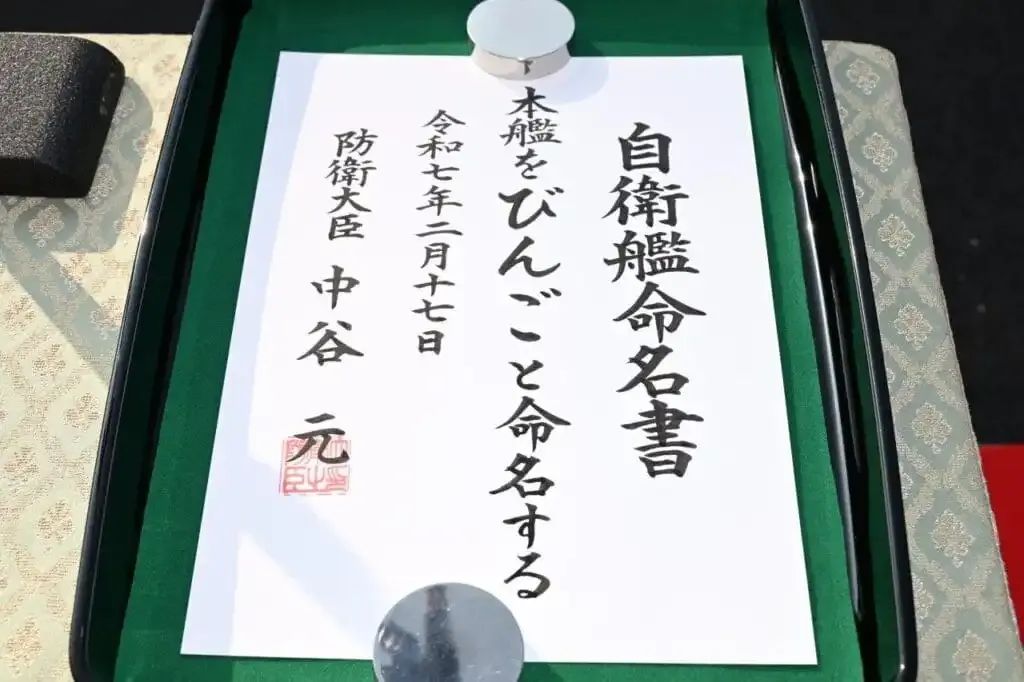 自衛艦命名書
本艦をびんごと命名する
令和七年二月十七日
防衛大臣 中谷 元